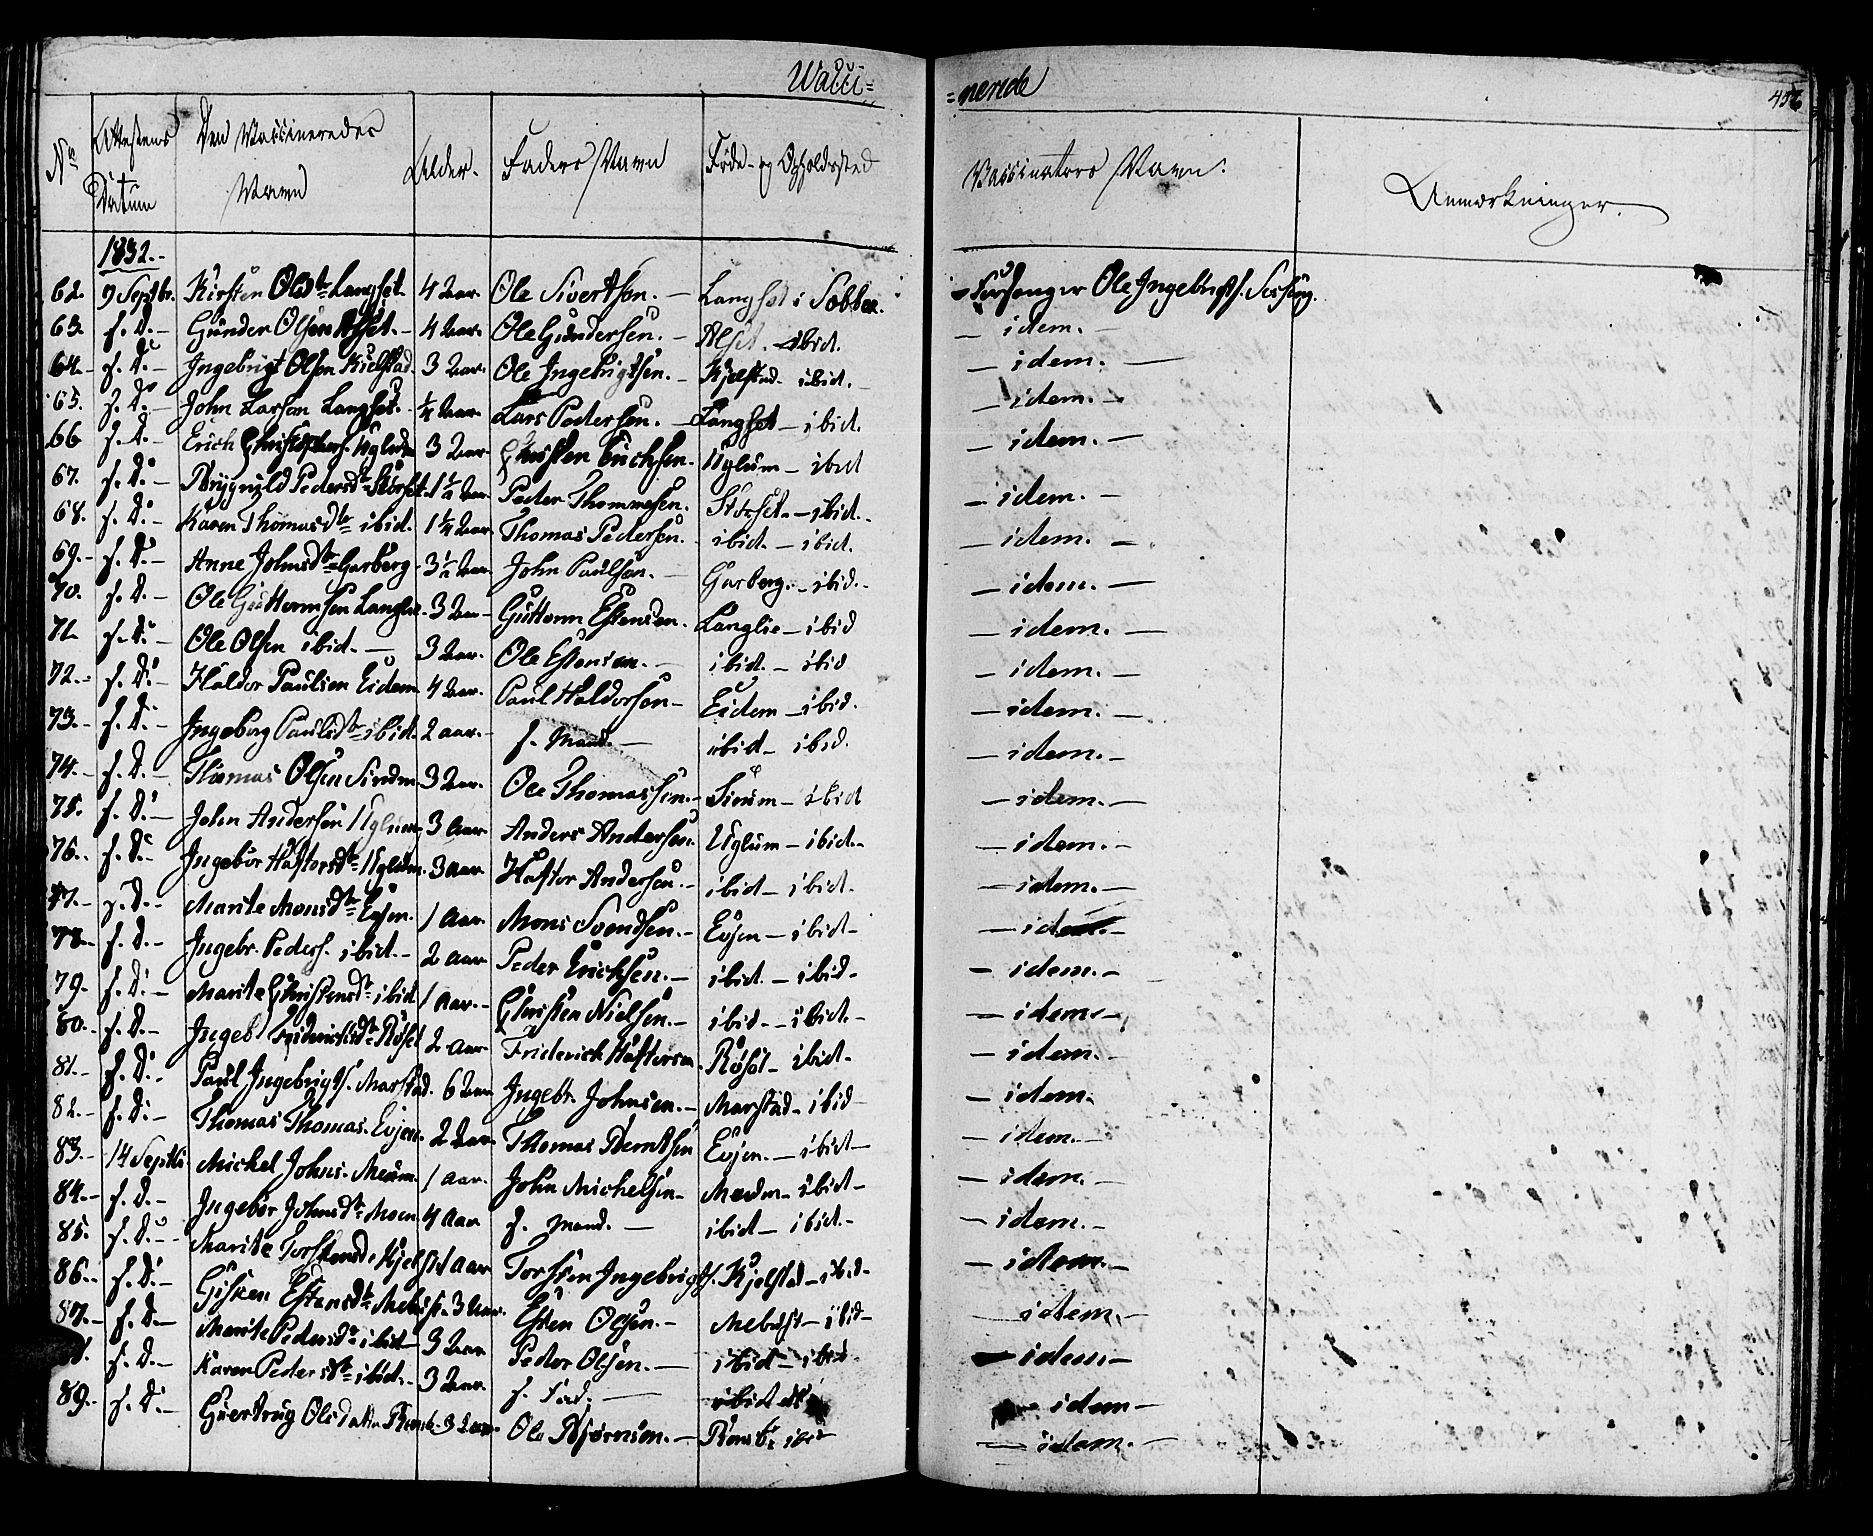 Wacci=
=nerede
No
Attestens Datum
Den Vaccineredes Navn
Alder.
Faders Navn
Føde- og Opholdssted
Vaccinators Navn.
Anmærkninger.
1832.-
62. 9 Septbr. Kirsten Olsdtr Langset. 4 Aar. Ole Sivertsen. — Langset i Selboe. Forsanger Ole Ingebrigts.
63. s. D. — Gunder Olsen Alset. — 4 Aar. Ole Gundersen. — Alset. ibid. — idem. —
64. s. D. — Ingebrigt Olsen Kielstad 3 Aar. Ole Ingebrigtsen. — Kjelstad. ibid. — idem. —
65. s. D. — John Larsen Langset. ¼ Aar. Lars Pedersen. — Langset — ibid. — idem. —
66 s. D. — Erich Christens. Uglum 3 Aar. Christen Erichsen. Uglum — ibid — idem. —
67. s. D. — Bryynild Pedersdtr Storset 1½ Aar Peder Thommesen. Storset. — ibid. — idem. —
68. s. D. — Karen Thomasdtr ibid. 1¼ Aar. Thomas Pedersen. ibid. — ibid. — idem. —
69. s. D. — Anne Johnsdtr Garberg 3½ Aar. John Paulsen. — Garberg. — ibid. — idem. —
70. s. D. — Ole Guttormsen Langlie. 3 Aar — Guttorm Estensen. Langlie — ibid — idem. —
71. s. D. — Ole Olsen ibid. — 3 Aar. Ole Estensen. — ibid. — ibid — idem. —
72. s. D. — Haldor Paulsen Eidem 4 Aar. Paul Haldorsen — Eidem — ibid. — idem. —
73. s. D. — Ingeborg Paulsdtr ibid. 2 aar. s. Mand. — ibid — ibid. — idem. —
74. s. D. — Thomas Olsen Sirum 3 Aar. Ole Thomassen. — Sirum — ibid — idem. —
75. s. D. — John Andersen Uglum 3 Aar. Anders Andersen. Uglum — ibid. — idem. —
76. s. D. — Ingebor Haftorsdtr Uglum. 3 aar. Haftor Andersen. — ibid — ibid. — idem. —
77. s. D. — Marite Monsdtr Evjen. 1 Aar. Mons Svendsen. — Evjen — ibid — idem. —
78. s. D. — Ingebr. Peders. ibid. — 2 aar. Peder Erichsen. — ibid. — ibid — idem. —
79. s. D. — Marite Christensdtr ibid 1 Aar. — Christen Nielsen. — ibid. — ibid. — idem. —
80. s. D. — Ingeb. Fridrichsdtr Røset 2 Aar. Friderich Haftorsen. Røset — ibid. — idem. —
81. s. D. — Paul Ingebrigts. Marstad. 6 Aar Ingebr. Johnsen. — Marstad — ibid — idem.
82. s. D. — Thomas Thomas. Evjen. 2 Aar. Thomas Berntsen Evjen. — ibid — idem. —
83. 14 Septbr. Mickel Johns. Meum. 1 Aar. John Mickelsen — Meum — ibid — idem. —
84. s. D. — Ingebor Johnsdtr Moen 4 Aar s. Mand. — ibid — ibid. — idem. —
85. s. D. — Marite Torstensd. Kjelst. 1 Aar Torsten Ingebrigts. Kjelstad — ibid — idem. —
86. s. D. — Gisken Estensdtr Mebust. 3 Aar. Esten Olsen. — Mebust — ibid — idem. —
87. s. D. — Marite Pedersdtr ibid 3 Aar Peder Olsen. — ibid — ibid. — idem —
s. D. — Karen Pedersdtr ibid. — 3 Aar. s. Fad. — ibid — idem —
89. s. D. — Giertrug Olsdatter 3 Aar. Ole Bjørnsen. — ibid — idem. —